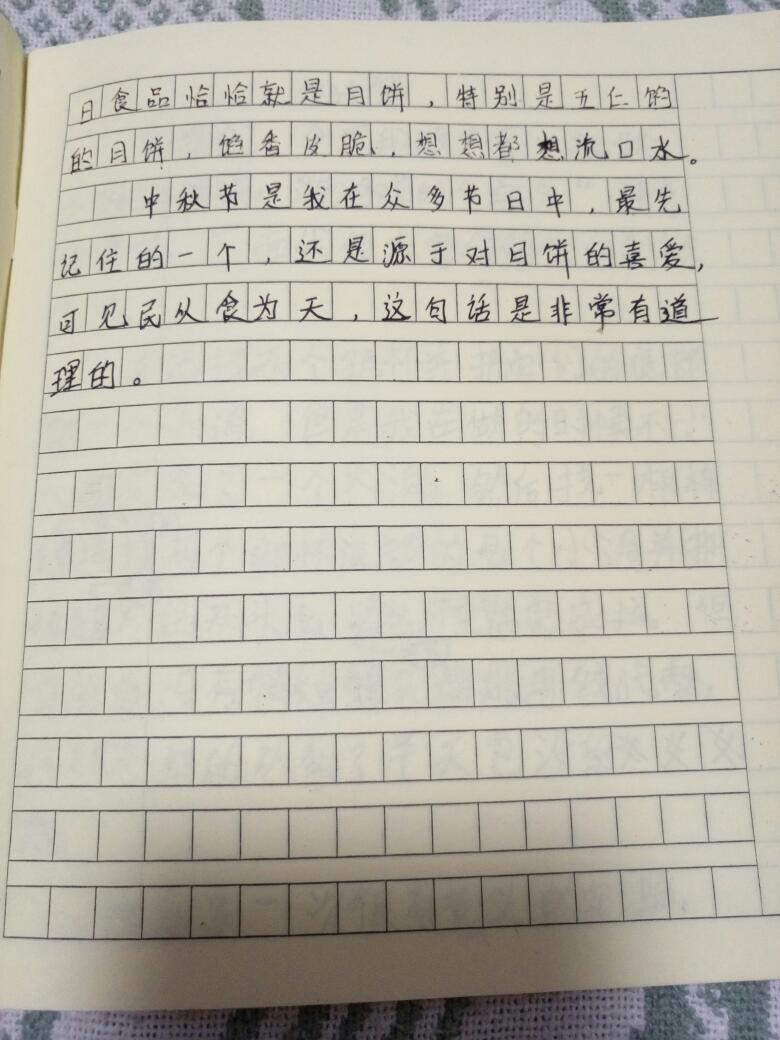 日食品恰恰就是月饼，特别是五仁馅
的月饼，馅香皮脆，想想都想流口水。
中秋节是我在众多节日中，最先
记住的一个，还是源于对月饼的喜爱，
可见民从食为天，这句话是非常有道
理的。